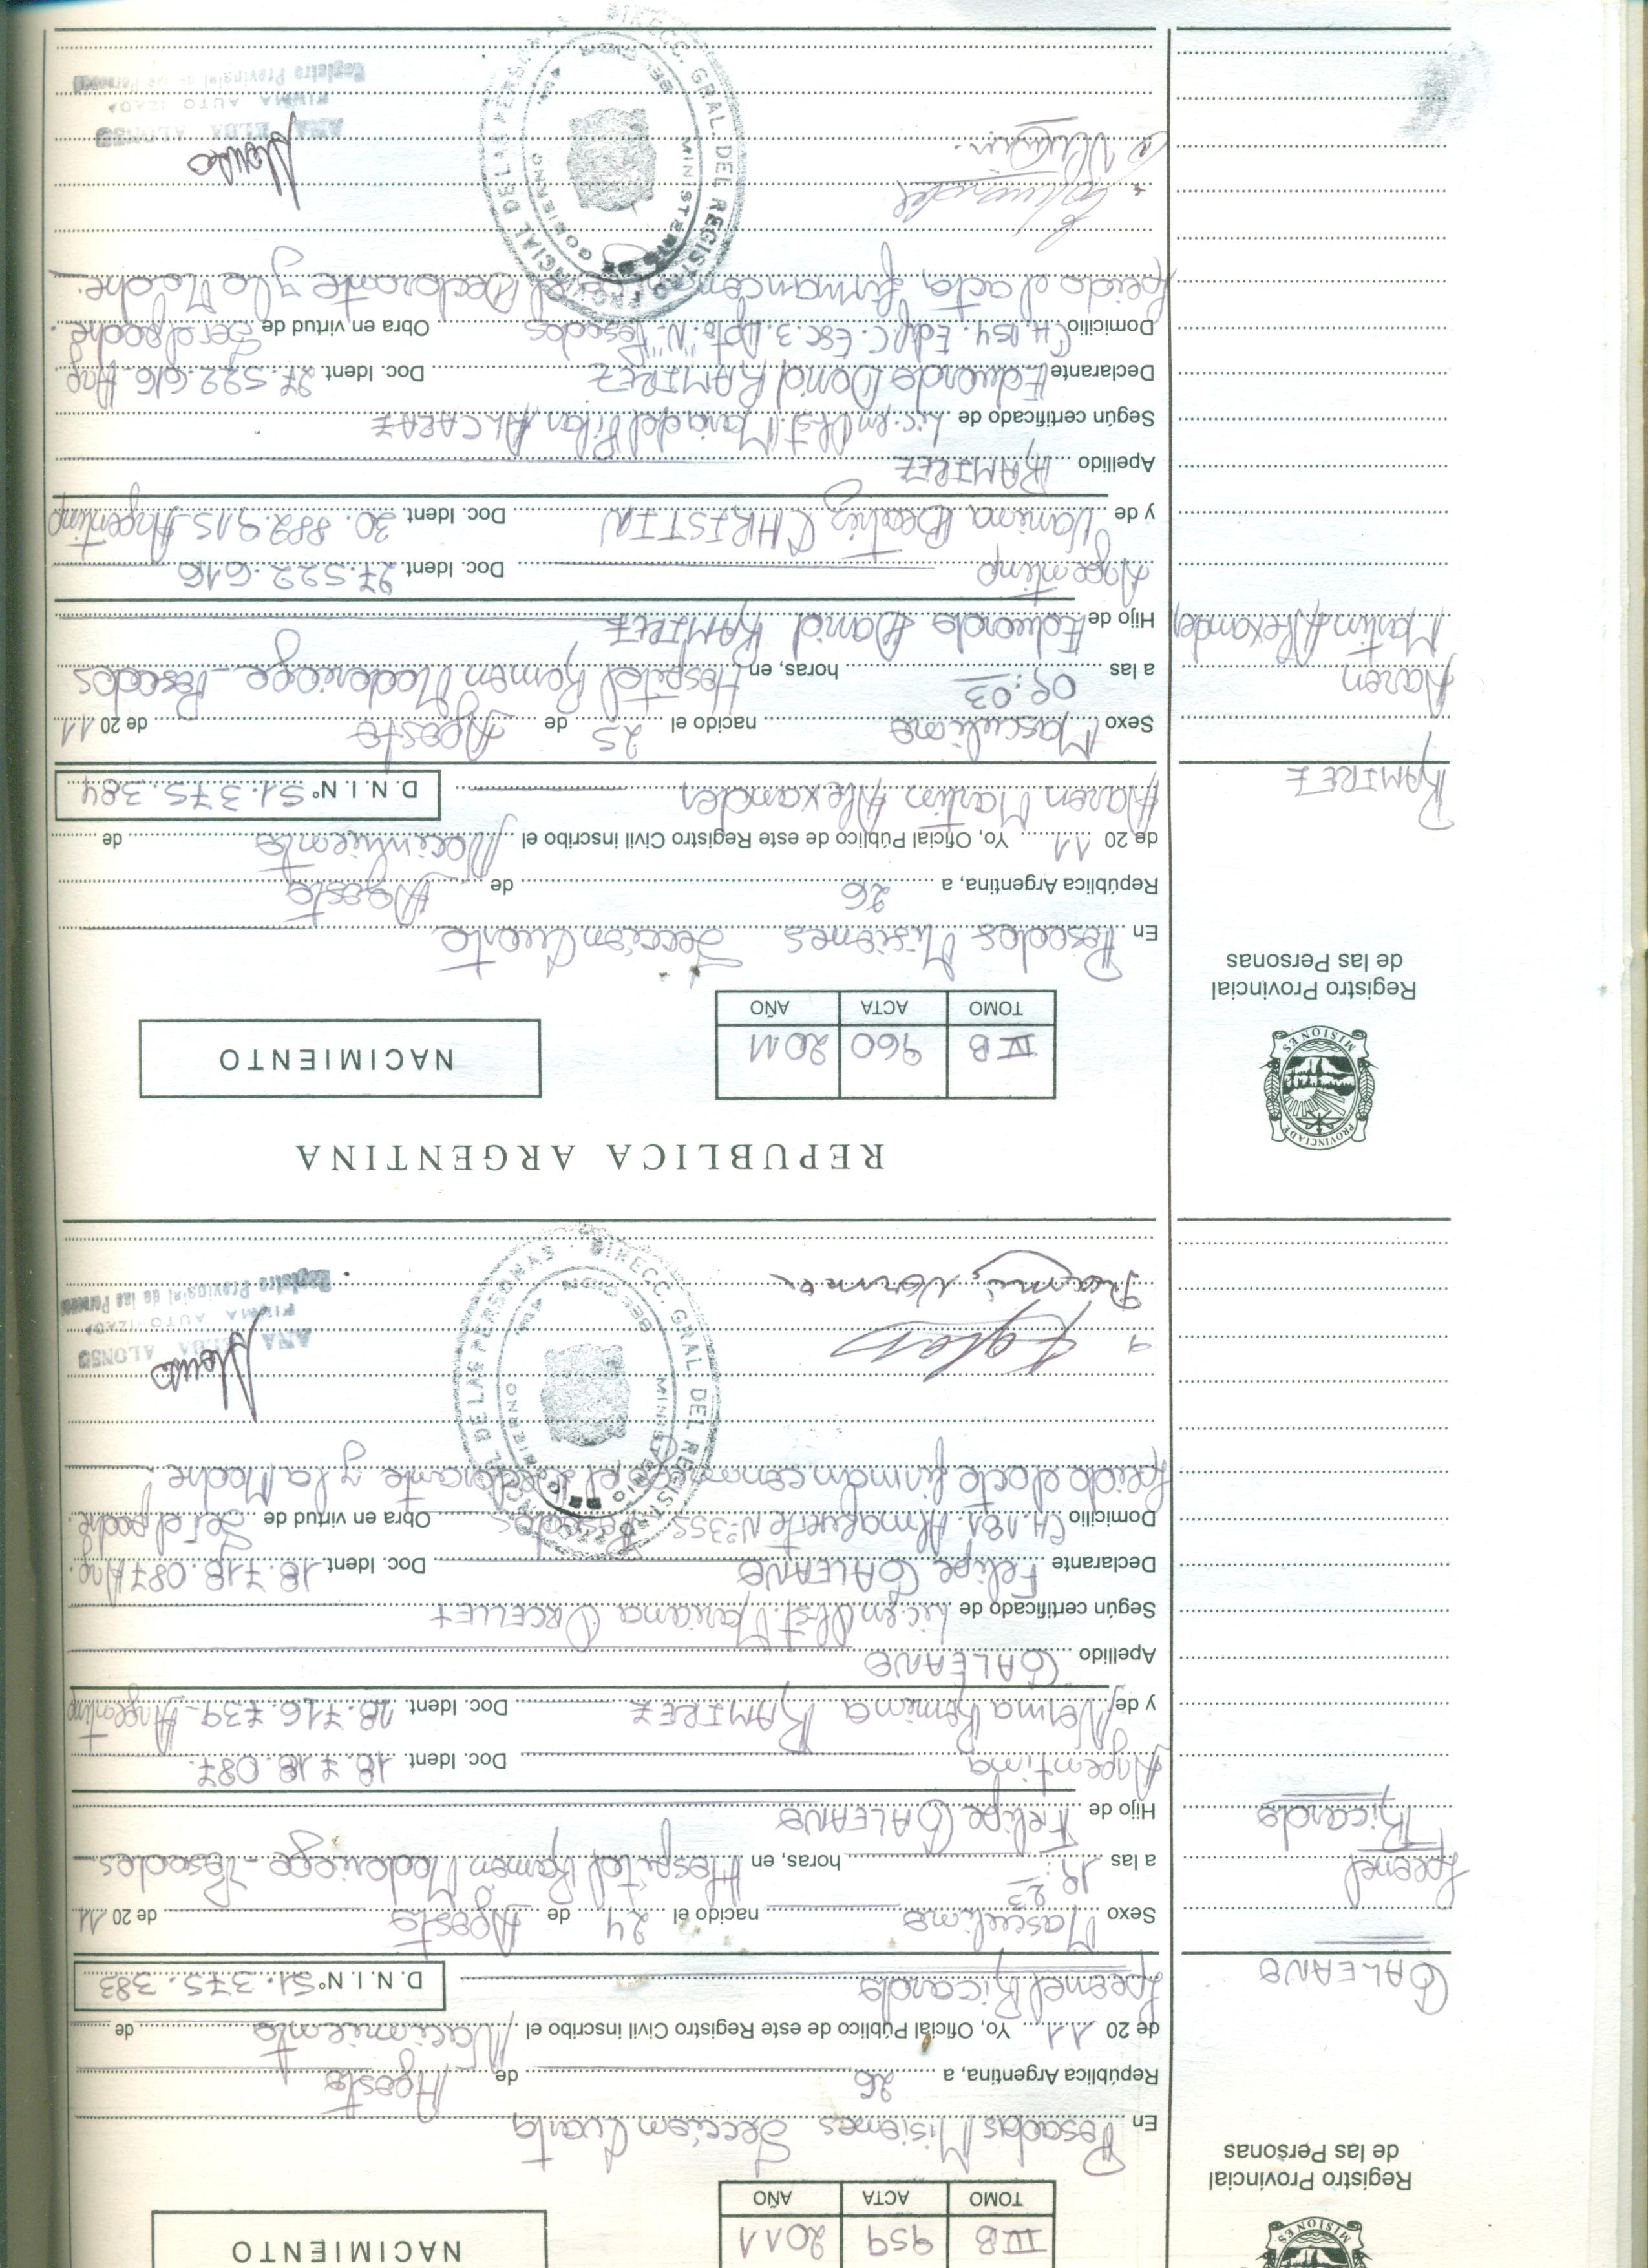 NACIMIENTO
TOMO ACTA AÑO
IV B 959 2011
MISIONES
Registro Provincial
de las Personas
En Posadas Misiones Sección Cuarta
República Argentina, a 26 de Agosto
de 20 11 Yo, Oficial Público de este Registro Civil inscribo el Nacimiento de
Leonel Ricardo D.N.I. Nº 51.375.383
GALEANO
Leonel
Ricardo
Sexo Masculino nacido el 24 de Agosto de 20 11
a las 19:23 horas, en Hospital Ramon Madariaga - Posadas
Hijo de Felipe GALEANO
Argentina Doc. Ident. 18.718.087.
y de Norma Ramina RAMIREZ Doc. Ident. 28.716.739- Argentina
Apellido GALEANO
Según certificado de Lic. en Obst. Mariana ORCELLET
Declarante Felipe GALEANO Doc. Ident. 18.718.087 Arg.
Domicilio CH. 181. Almafuerte Nº 355 Posadas Obra en virtud de Ser el padre.
Leida el acta firman conmigo el Declarante y la Madre.
DIRECC. GRAL. DEL REGISTRO PROVINCIAL DE LAS PERSONAS
MINISTERIO DE GOBIERNO
ANA ELBA ALONSO
FIRMA AUTORIZADA
Registro Provincial de las Personas
REPUBLICA ARGENTINA
PROVINCIA DE
MISIONES
Registro Provincial
de las Personas
NACIMIENTO
TOMO ACTA AÑO
IV B 960 2011
En Posadas Misiones Sección Cuarta
República Argentina, a 26 de Agosto
de 20 11 Yo, Oficial Público de este Registro Civil inscribo el Nacimiento de
Aaren Martin Alexander D.N.I. Nº 51.375.384
RAMIREZ
Aaren
Martin Alexander
Sexo Masculino nacido el 25 de Agosto de 20 11
a las 09:03 horas, en Hospital Ramon Madariaga - Posadas
Hijo de Eduardo David RAMIREZ
Argentino Doc. Ident. 27.522.616
y de Vanina Beatriz CHRISTIN Doc. Ident. 30.882.915- Argentina
Apellido RAMIREZ
Según certificado de Lic. en Obst. Maria del Pilar ALCARAZ
Declarante Eduardo David RAMIREZ Doc. Ident. 27.522.616 Arg
Domicilio CH. 154. Edif. C. Esc. 3. Dpto "N" Posadas Obra en virtud de Ser el padre.
Leida el acta, firman conmigo el Declarante y la Madre.
DIRECC. GRAL. DEL REGISTRO PROVINCIAL DE LAS PERSONAS
MINISTERIO DE GOBIERNO
ANA ELBA ALONSO
FIRMA AUTORIZADA
Registro Provincial de las Personas